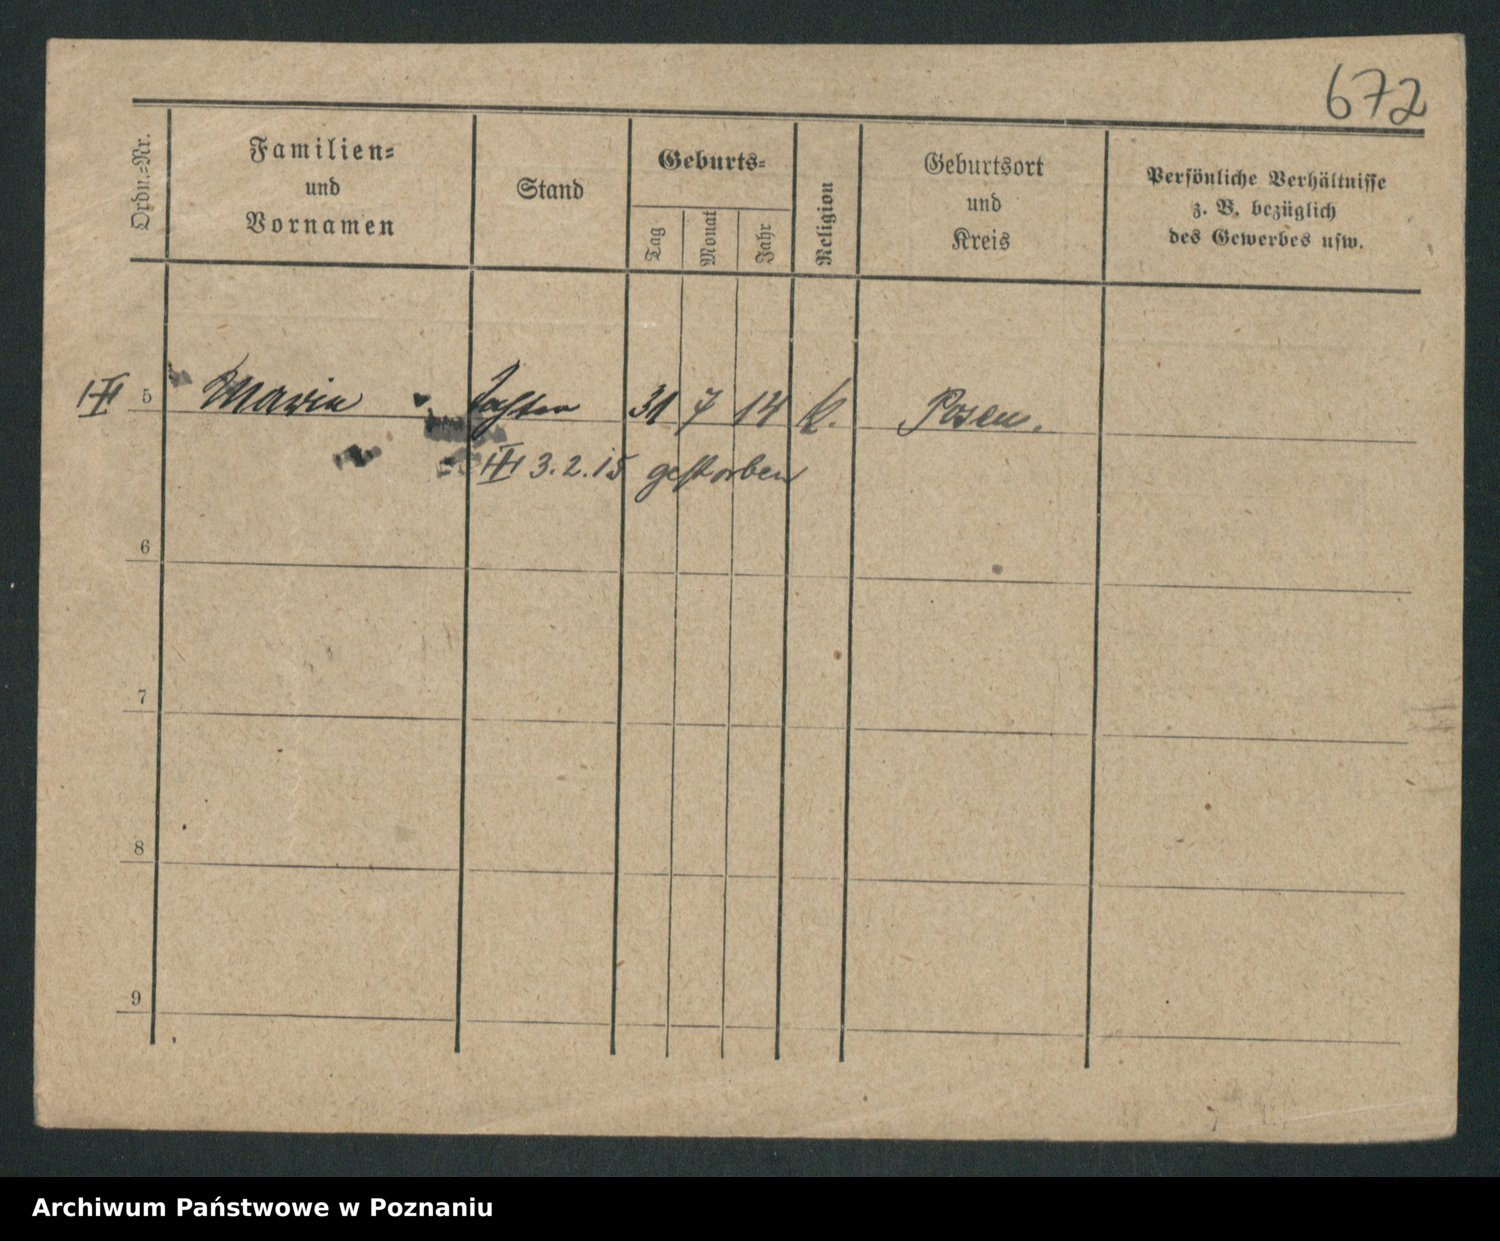 672
Ordn.-Nr.
Familien-
und
Vornamen
Stand
Geburts-
Tag
Monat
Jahr
Religion
Geburtsort
und
Kreis
Persönliche Verhältnisse
z. B. bezüglich
des Gewerbes usw.
5 Maria Tochter 31 7 14 k. Posen.
3.2.15 gestorben
6
7
8
9
Archiwum Państwowe w Poznaniu